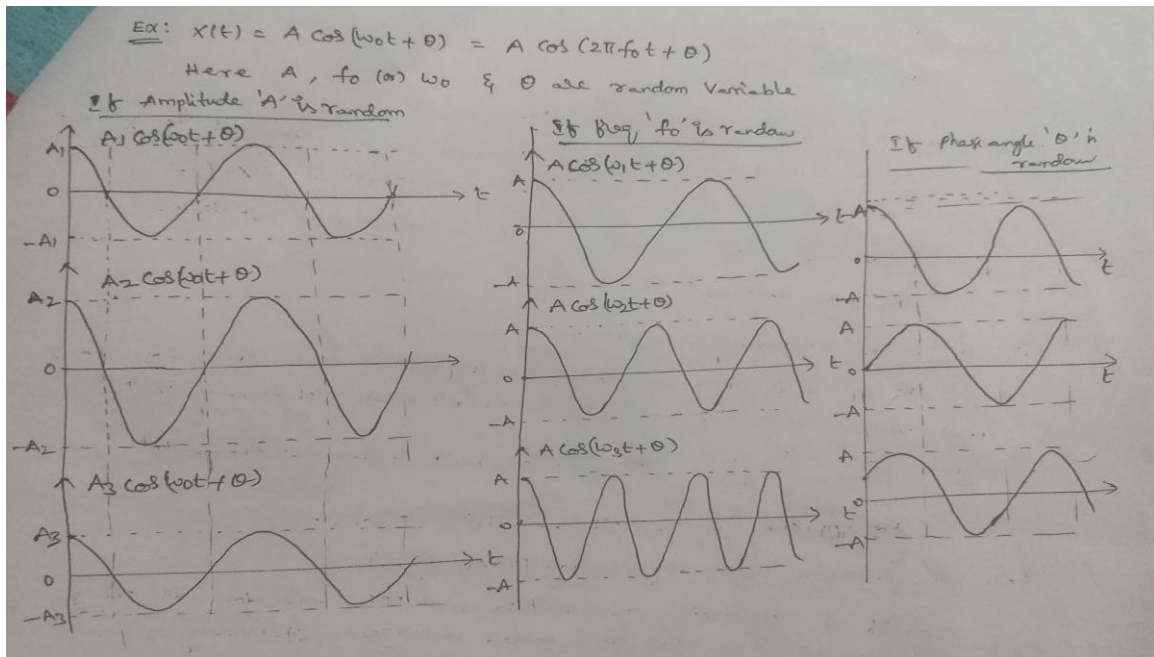 Ex: X(t) = A cos(ω0t + θ) = A cos (2πf0t + θ)
Here A, f0 (or) ω0 & θ are random Variable
If Amplitude 'A' is random
A1 cos(ω0t + θ)
A1
0
-A1
t
A2 cos(ω0t + θ)
A2
0
-A2
A3 cos(ω0t + θ)
A3
0
-A3
t
If freq 'f0' is random
A cos(ω1t + θ)
A
0
-A
t
A cos(ω2t + θ)
A
0
-A
t
A cos(ω3t + θ)
A
0
-A
t
If phase angle 'θ' is
random
A
0
-A
t
A
0
-A
t
A
0
-A